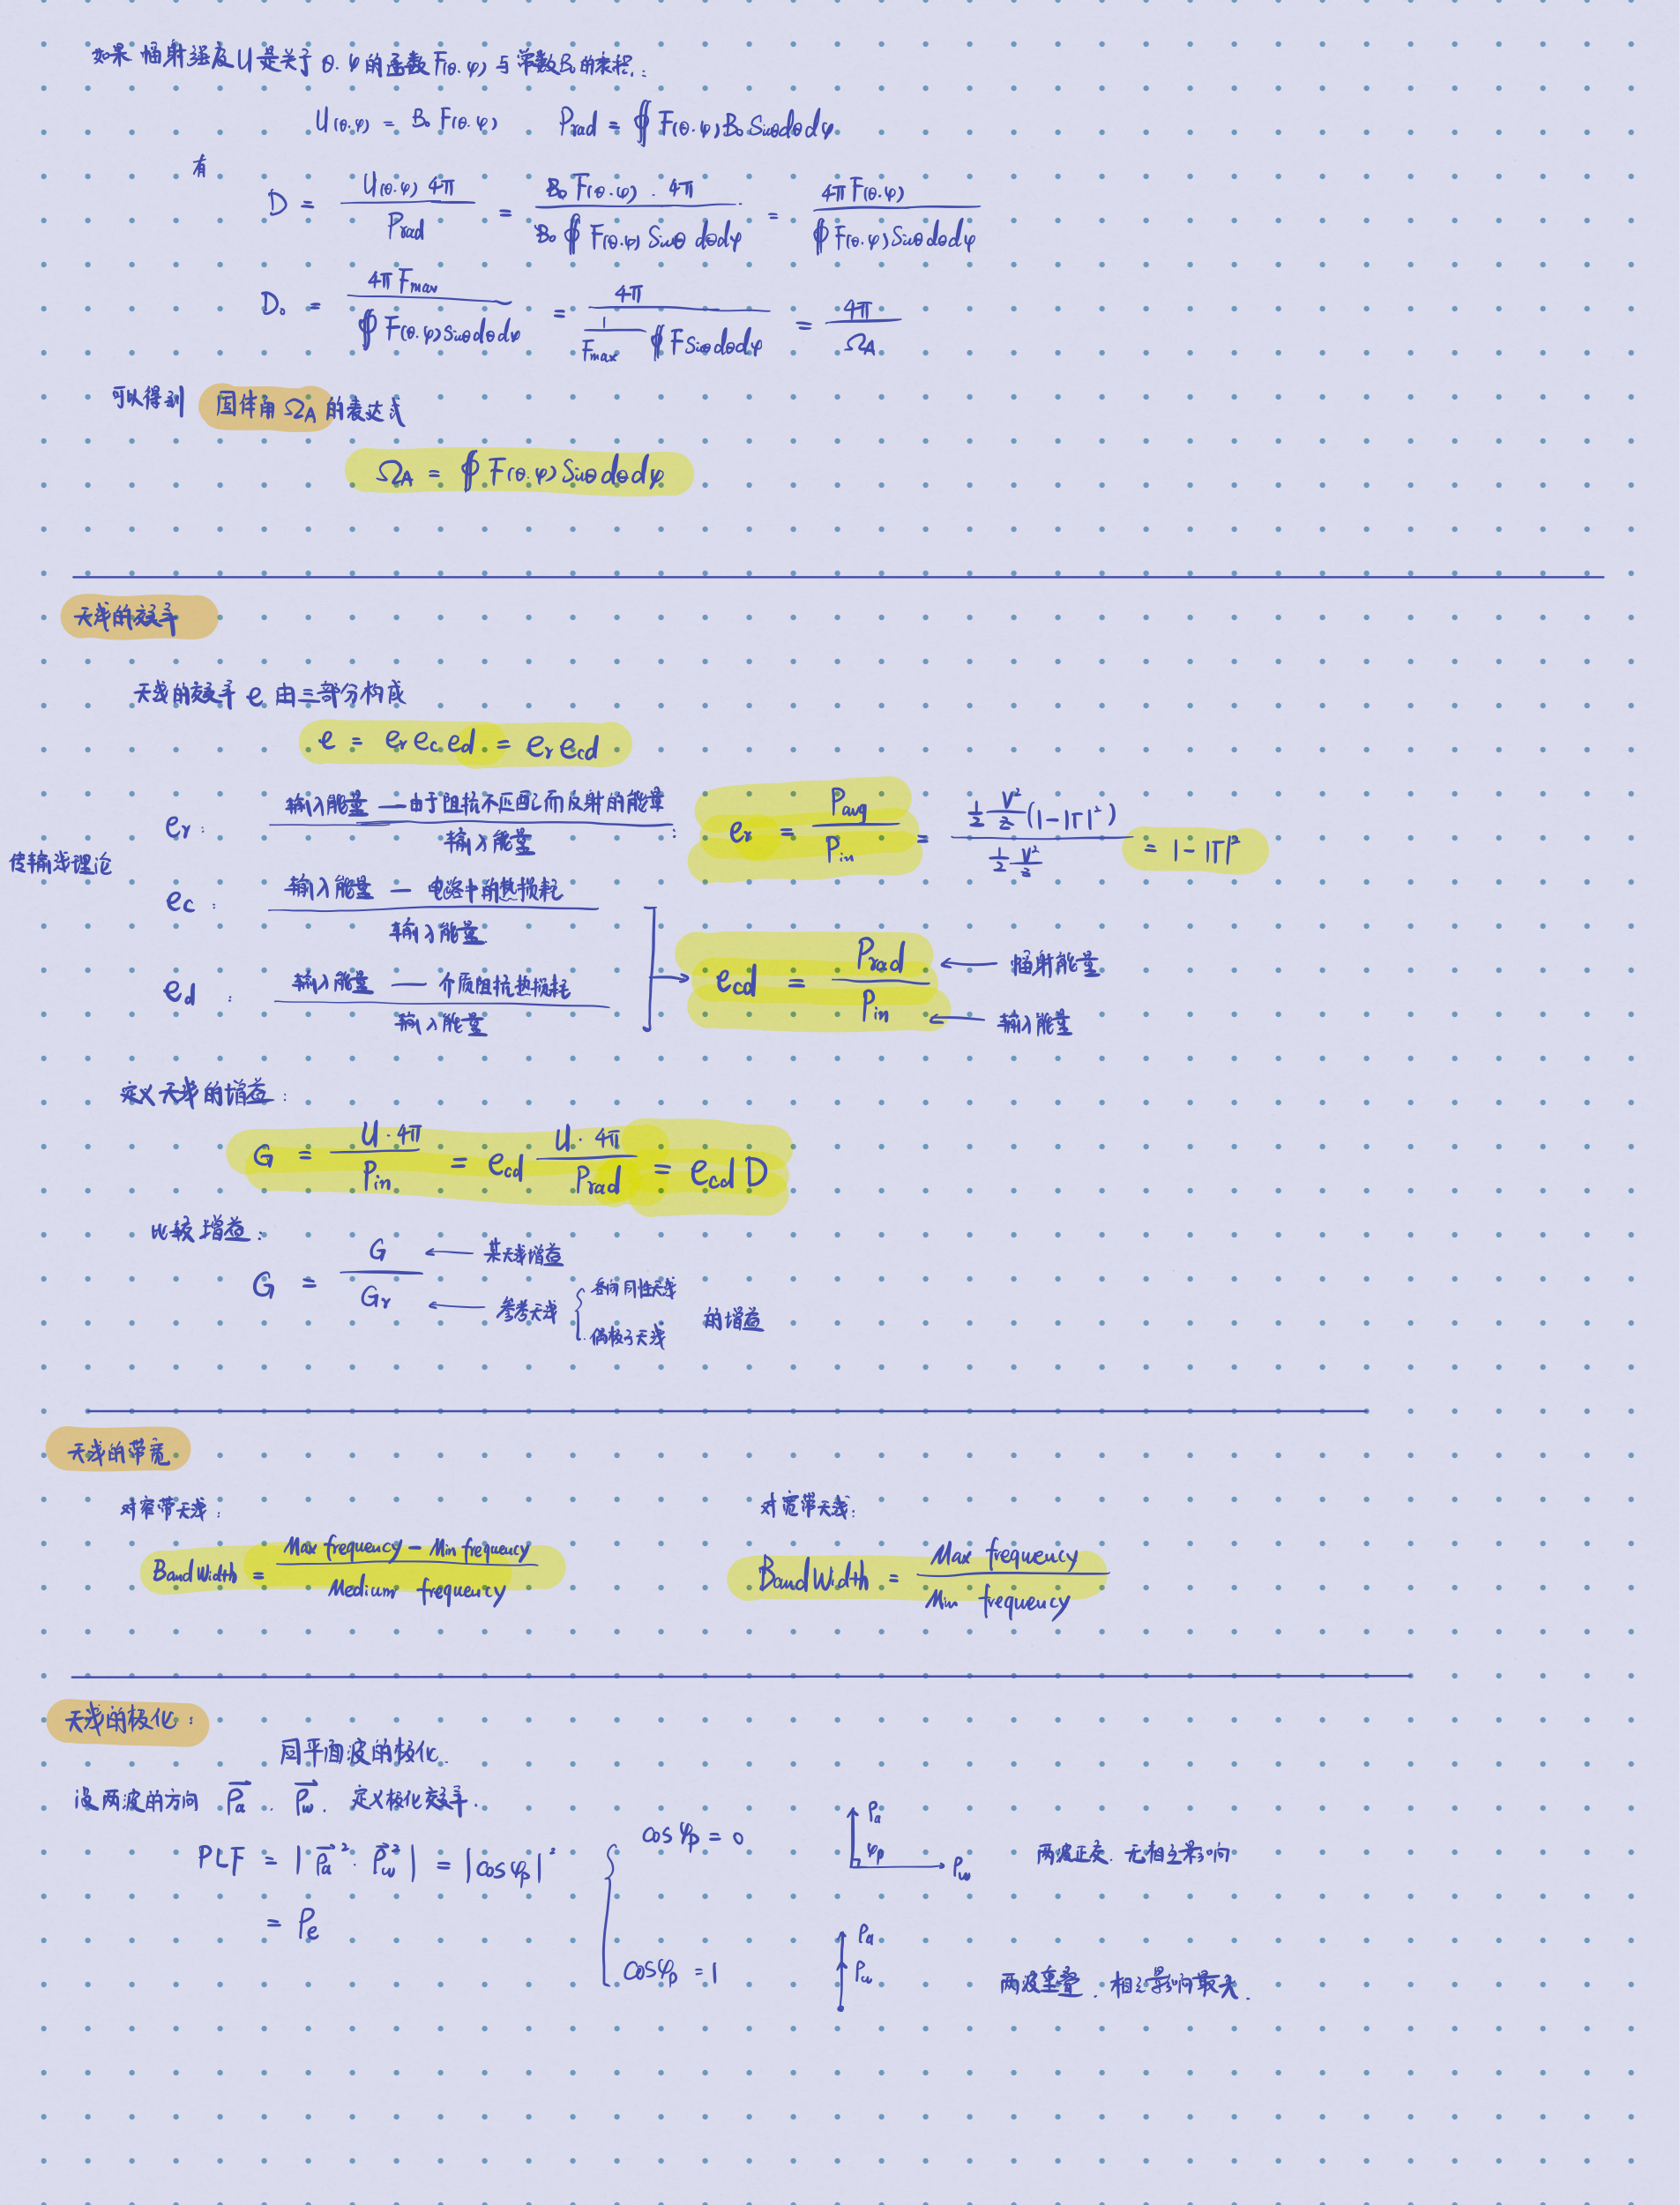 如果 幅射强度U是关于 θ.φ的函数F(θ.φ) 与 常数B₀的乘积.:
U(θ.φ) = B₀ F(θ.φ)    Prad = ∯ F(θ.φ) B₀ Sinθdθdφ
有
D = U(θ.φ) 4π / Prad = B₀ F(θ.φ) . 4π / B₀ ∯ F(θ.φ) Sinθ dθdφ = 4π F(θ.φ) / ∯ F(θ.φ) Sinθdθdφ
D₀ = 4π Fmax / ∯ F(θ.φ) sinθdθdφ = 4π / (1/Fmax ∯ F Sinθdθdφ) = 4π / ΩA
可以得到 固体角 ΩA 的表达式
ΩA = ∯ F(θ.φ) Sinθdθdφ
天线的效率
天线的效率 e 由三部分构成
e = er ec ed = er ecd
er : 输入能量 — 由于阻抗不匹配而反射的能量 / 输入能量 : er = Pavg / Pin = ½ V²/z (1-|Γ|²) / ½ V²/z = 1-|Γ|²
传输线理论
ec : 输入能量 — 电路中的热损耗 / 输入能量
ed : 输入能量 — 介质阻抗热损耗 / 输入能量
→ ecd = Prad / Pin ← 幅射能量 ← 输入能量
定义 天线的增益 :
G = U · 4π / Pin = ecd U · 4π / Prad = ecd D
比较 增益 :
G = G / Gr ← 某天线增益 ← 参考天线 { 各向同性天线 偶极子天线 的增益
天线的带宽
对窄带天线 :    对宽带天线 :
Band Width = Max frequency - Min frequency / Medium frequency    Band Width = Max frequency / Min frequency
天线的极化 :
同平面波的极化.
设两波的方向 P⃗a . P⃗w. 定义极化效率.
PLF = |P⃗a² · P⃗w²| = |cosφp|² { cosφp = 0    Pa φp Pw    两波正交. 无相互影响
= Pe
cosφp = 1    Pa Pw    两波重叠. 相互影响最大.